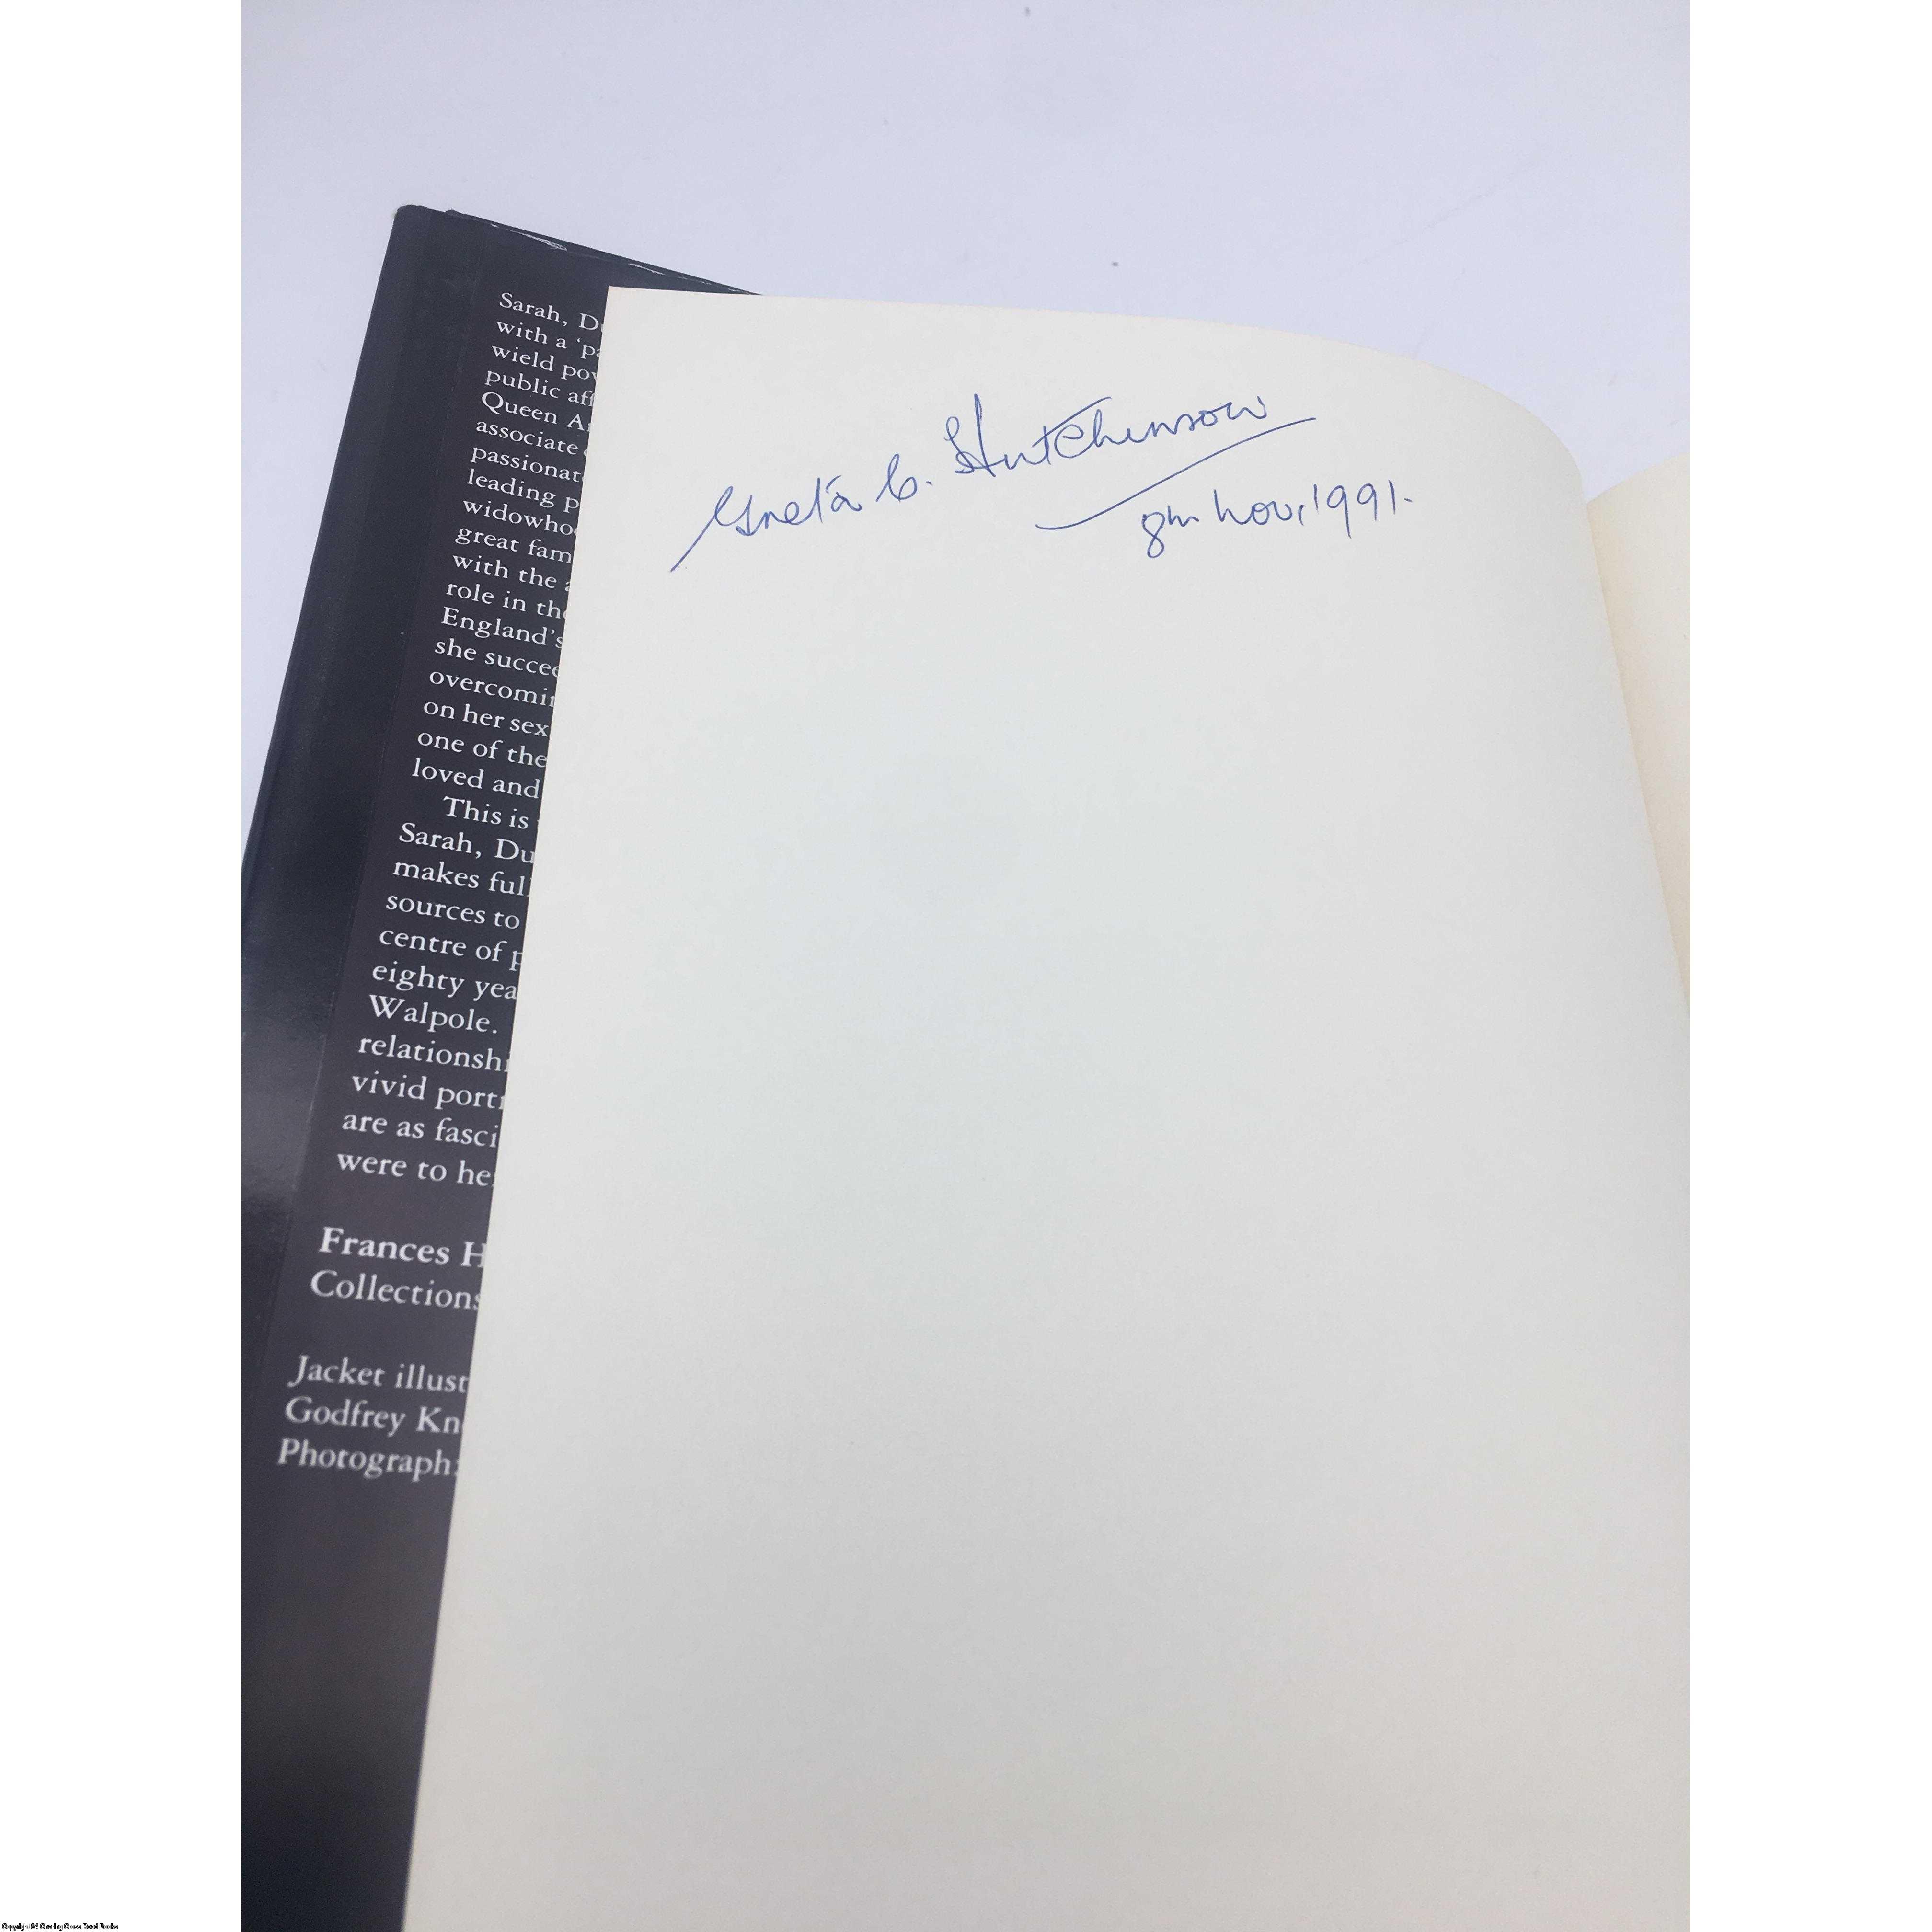 Sarah, Du
with a 'pa
wield pow
public aff
Queen An
associate
passionat
leading p
widowhoo
great fam
with the a
role in the
England's
she succee
overcomin
on her sex
one of the
loved and
This is
Sarah, Du
makes full
sources to
centre of p
eighty yea
Walpole.
relationshi
vivid portr
are as fasci
were to he
Frances H
Collections
Jacket illust
Godfrey Kn
Photograph:
Greta C. Hutchinson
8th Nov, 1991.
Copyright 84 Charing Cross Road Books